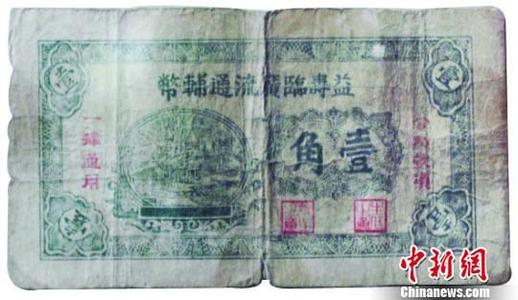 益壽臨廣流通輔幣
公私款項
壹角
一律通用
中新網
Chinanews.com